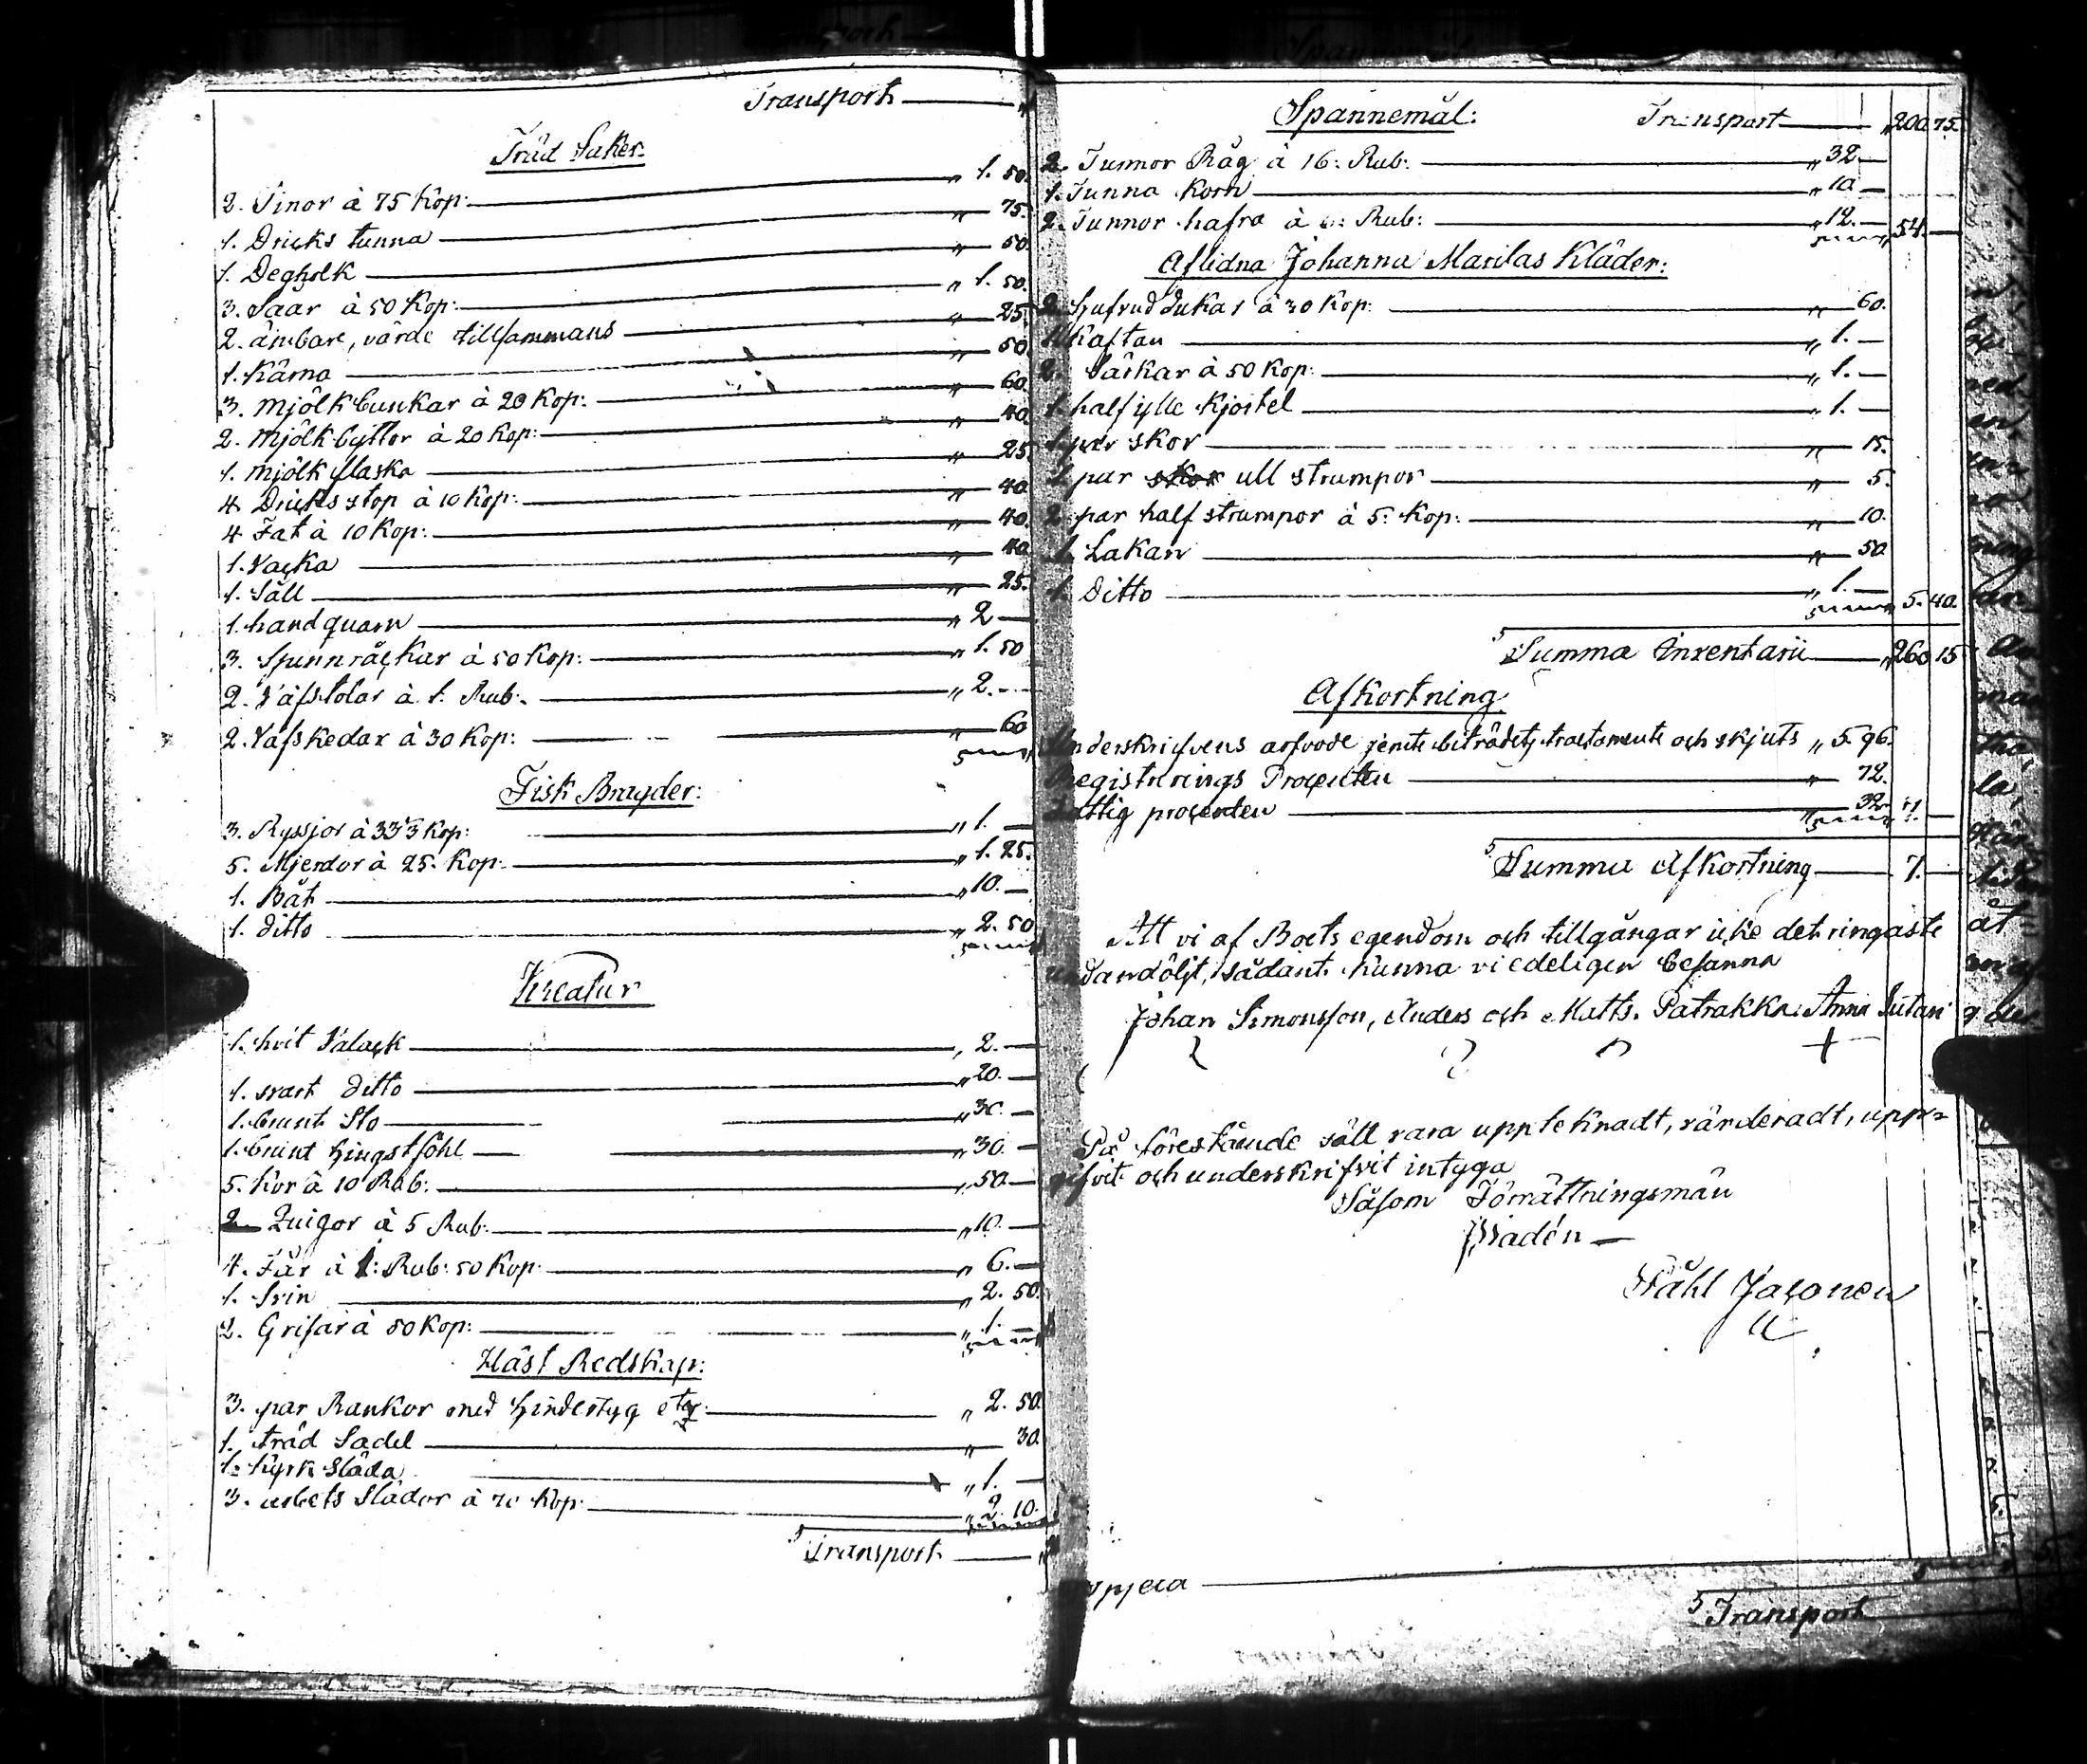 Transport „
Träd Saker:
2. Tinor à 75 Kop: „ 1. 50.
1. Dricks tunna „ 75.
1. Degholk „ 50.
3. Saar à 50 Kop: „ 1. 50.
2. ämbare, värde tillsammans „ 25.
1. Kärna „ 50.
3. Mjölk bunkar à 20 Kop: „ 60.
2. Mjölk byttor à 20 Kop: „ 40.
1. Mjölk flaska „ 25.
4 Dricks stop à 10 Kop: „ 40.
4 Fat à 10 Kop: „ 40.
1. Vacka „ 40.
1. Såll „ 25.
1. handquarn „ 2 —
3. Spinnråckar à 50 Kop: „ 1. 50
2. Väfstolar à 1. Rub: „ 2. —
2. Väfskedar à 30 Kop: „ 60
Fisk Bragder:
3. Ryssjor à 33⅓ Kop: „ 1. —
5. Mjerdor à 25. Kop: „ 1. 25.
1. Båt „ 10. —
1. ditto „ 2. 50
Kreatur
1. hvit Valack „ 2. —
1. svart ditto „ 20. —
1. brunt Sto „ 30. —
1. brunt hingstföhl „ 30. —
5. Kor à 10 Rub: „ 50. —
2 Quigor à 5 Rub: „ 10. —
4. Får à 1: Rub: 50 Kop: „ 6. —
1. Svin „ 2. 50.
2. Grisar à 50 Kop: „ 1. —
Häst Redskap:
3. par Rankor med hindertyg etc: „ 2. 50.
1. träd Sadel „ 30.
1. Kyrk Släda „ 1. —
3. arbets Slädor à 70 Kop: „ 2. 10.
Transport „
Spannemål: Transport „ 200 75.
2. Tunnor Råg à 16: Rub: „ 32 —
1. Tunna Korn „ 10 —
2. Tunnor hafra à 6: Rub: „ 12. — „ 54. —
Aflidna Johanna Marilas Kläder:
2. hufvud dukar à 30 Kop: „ 60.
1 Kaftan „ 1. —
2. Särkar à 50 Kop: „ 1. —
1. halfylle Kjortel „ 1. —
1. par skor „ 15.
1. par skor ull strumpor „ 5.
2 par half strumpor à 5. Kop: „ 10.
1. Lakan „ 50
1. Ditto „ 1. — „ 5. 40.
Summa Inventarii „ 260 15
Afkortning
Underskrifvens arfvode jemte biträdets tractamente och skjuts „ 5. 96.
Registrerings Procenten „ 72.
Fattig procenten „ 32 7. —
Summa Afkortning 7. —
Att vi af Boets egendom och tillgångar icke det ringaste
undandöljt, sådant kunna vi edeligen besanna
Johan Simonsson, Anders och Matts. Patrakka. Anna
+
På förestående sätt vara uppteknadt, värderadt, upp=
gifvit och underskrifvit intyga
Såsom Förrättningsmän
Påhl
Transport